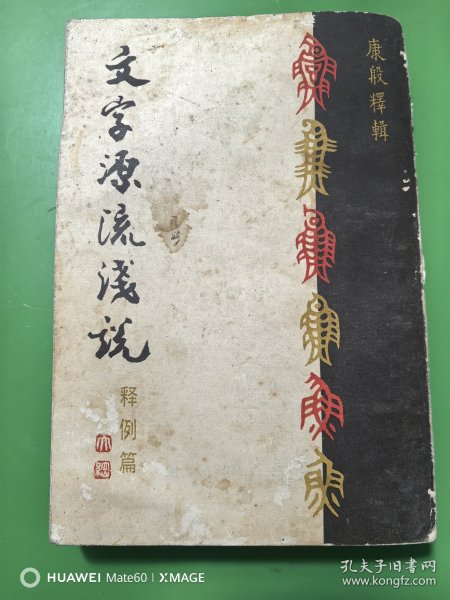 康殷釋輯
文字源流淺說
释例篇
HUAWEI Mate60 | XMAGE
孔夫子旧书网
www.kongfz.com